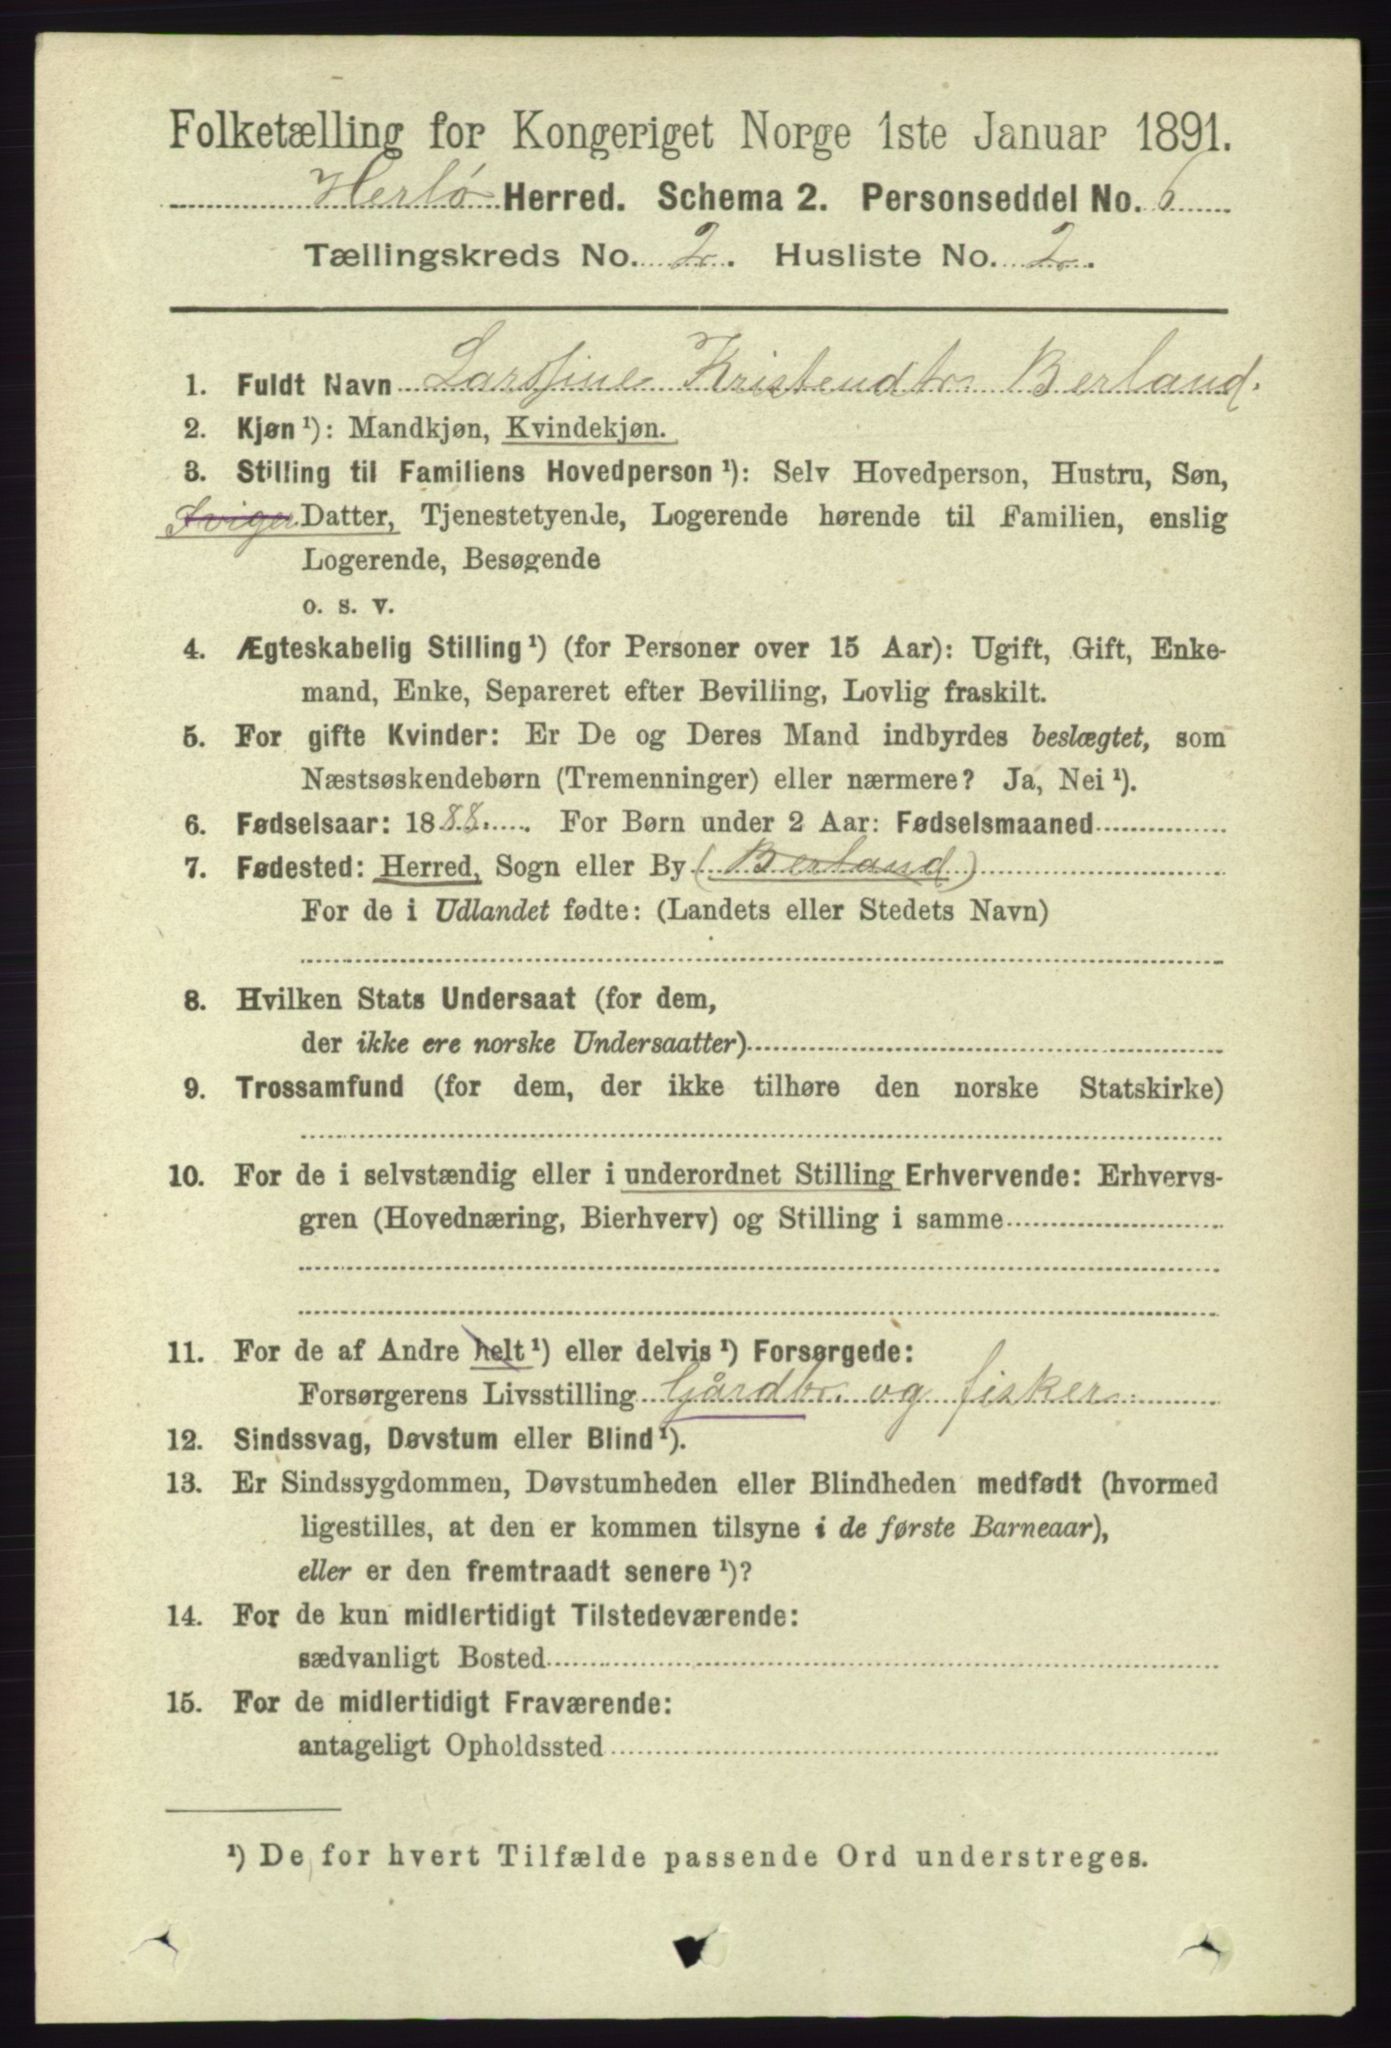 Folketælling for Kongeriget Norge 1ste Januar 1891.
Herlø Herred. Schema 2. Personseddel No. 6
Tællingskreds No. 2. Husliste No. 2.
1. Fuldt Navn Larsine Kristendtr. Berland.
2. Kjøn ¹): Mandkjøn, Kvindekjøn.
3. Stilling til Familiens Hovedperson ¹): Selv Hovedperson, Hustru, Søn,
Sviger Datter, Tjenestetyende, Logerende hørende til Familien, enslig
Logerende, Besøgende
o. s. v.
4. Ægteskabelig Stilling ¹) (for Personer over 15 Aar): Ugift, Gift, Enke-
mand, Enke, Separeret efter Bevilling, Lovlig fraskilt.
5. For gifte Kvinder: Er De og Deres Mand indbyrdes beslægtet, som
Næstsøskendebørn (Tremenninger) eller nærmere? Ja, Nei ¹).
6. Fødselsaar: 1888. For Børn under 2 Aar: Fødselsmaaned
7. Fødested: Herred, Sogn eller By (Berland)
For de i Udlandet fødte: (Landets eller Stedets Navn)
8. Hvilken Stats Undersaat (for dem,
der ikke ere norske Undersaatter)
9. Trossamfund (for dem, der ikke tilhøre den norske Statskirke)
10. For de i selvstændig eller i underordnet Stilling Erhvervende: Erhvervs-
gren (Hovednæring, Bierhverv) og Stilling i samme
11. For de af Andre helt ¹) eller delvis ¹) Forsørgede:
Forsørgerens Livsstilling Gårdbr. og fisker
12. Sindssvag, Døvstum eller Blind ¹).
13. Er Sindssygdommen, Døvstumheden eller Blindheden medfødt (hvormed
ligestilles, at den er kommen tilsyne i de første Barneaar),
eller er den fremtraadt senere ¹)?
14. For de kun midlertidigt Tilstedeværende:
sædvanligt Bosted
15. For de midlertidigt Fraværende:
antageligt Opholdssted
¹) De for hvert Tilfælde passende Ord understreges.